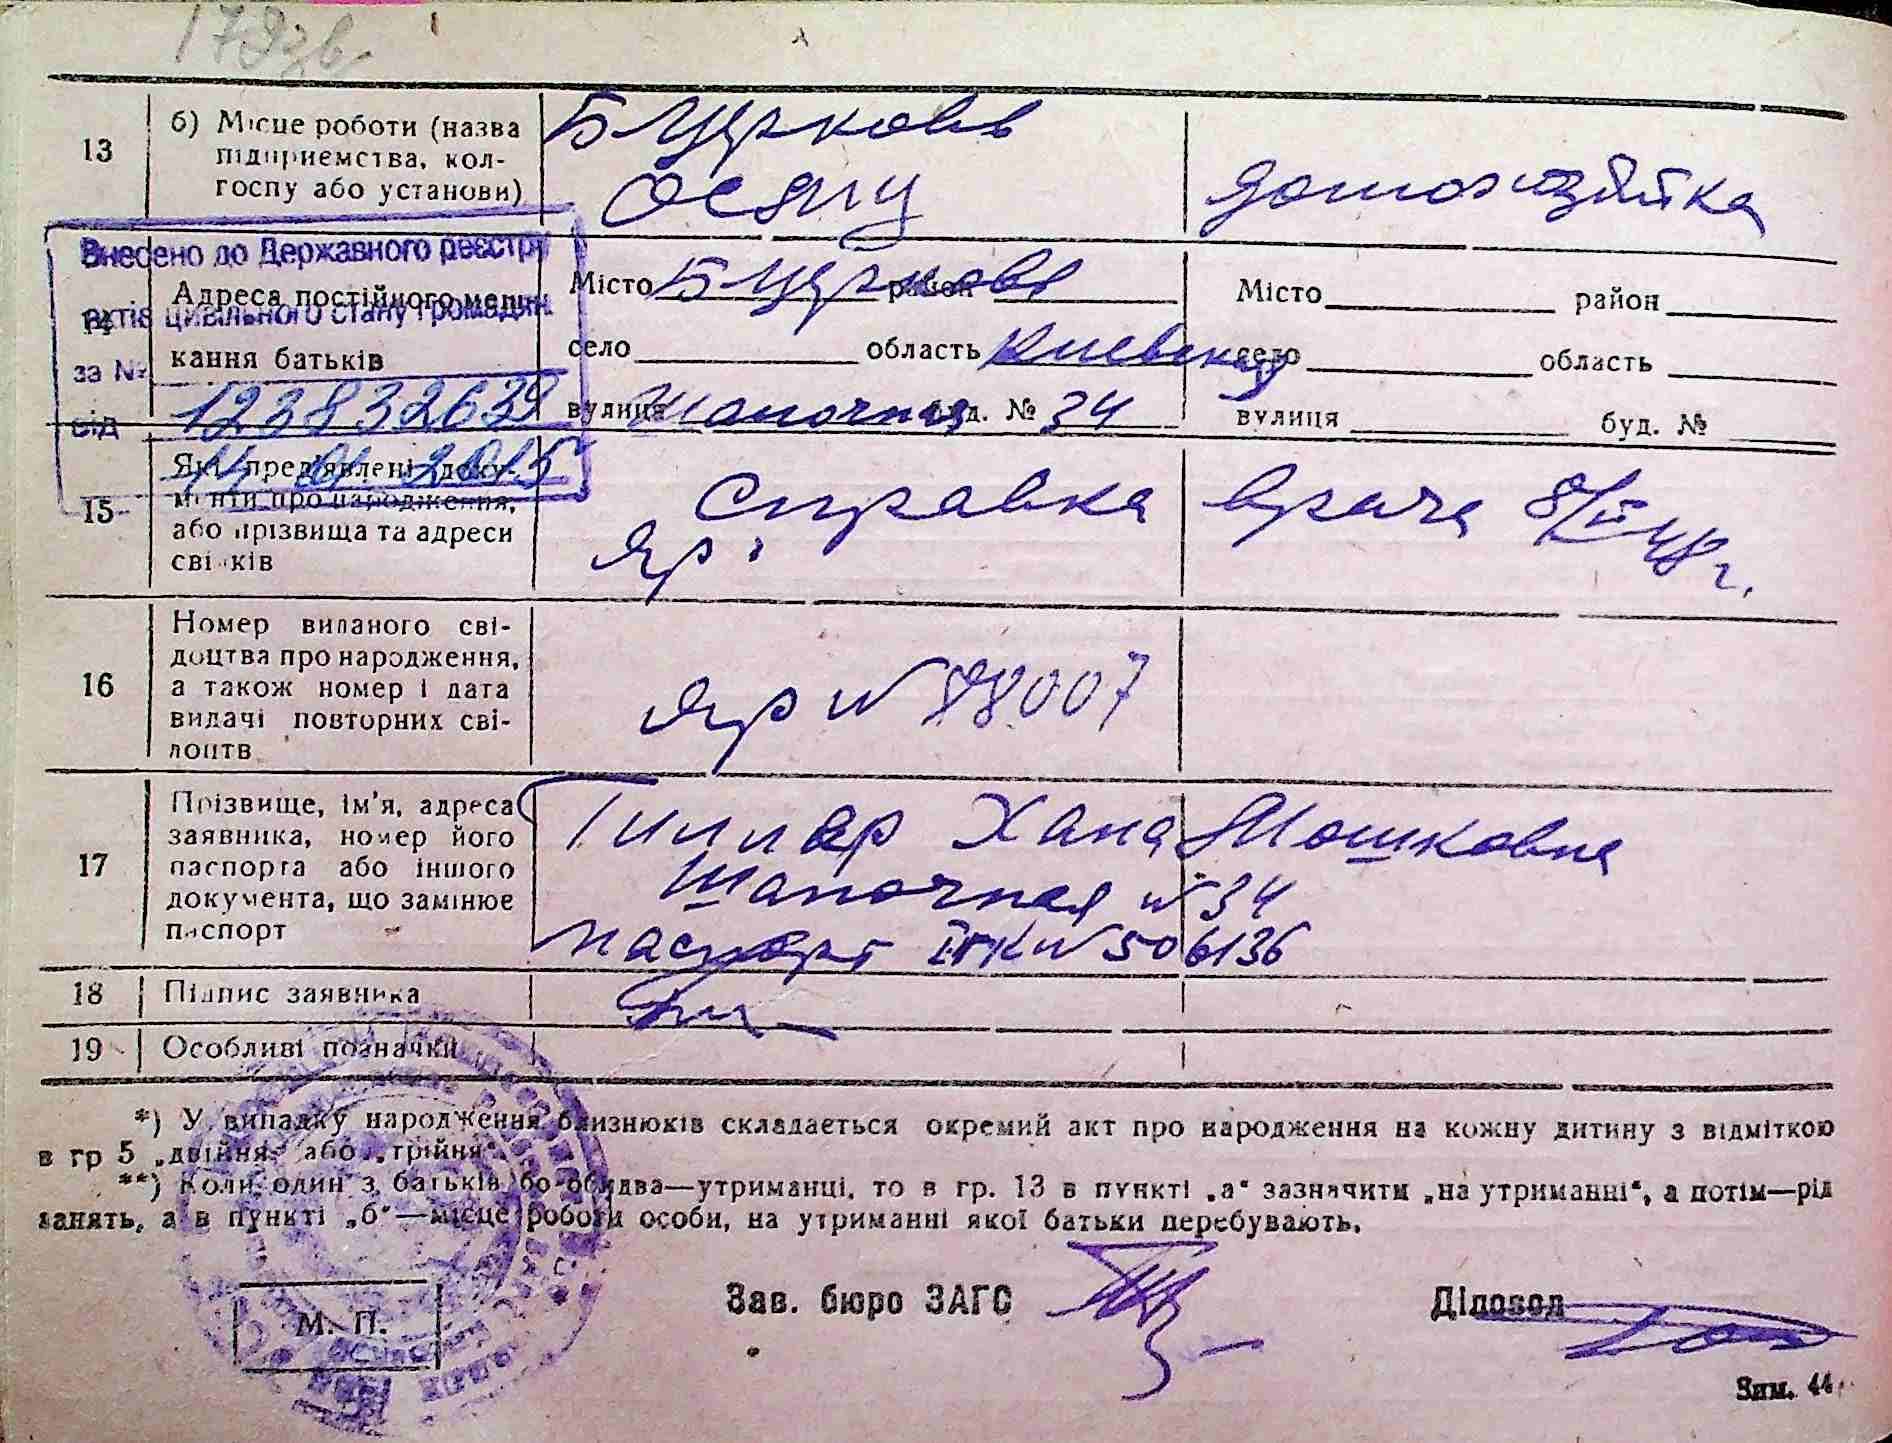 179зв
13
б) Місце роботи (назва
підприємства, кол-
госпу або установи)
Б Церковь
домохозяйка
Внесено до Державного реєстру
актів цивільного стану громадян
за №
123832639
від
14 01 2015
14
Адреса постійного меш-
кання батьків
Місто Б Церковь район
село область Киевская
вулиця Шапочная буд. № 34
Місто район
село область
вулиця буд. №
15
Які пред'явлені доку-
менти про народження,
або прізвища та адреси
свідків
Справка врача 8/II 48 г.
16
Номер виданого сві-
доцтва про народження,
а також номер і дата
видачі повторних сві-
доцтв
ЯР N 98007
17
Прізвище, ім'я, адреса
заявника, номер його
паспорта або іншого
документа, що замінює
паспорт
Гиллер Хана Мошковна
Шапочная N 34
паспорт N 506136
18
Підпис заявника
19
Особливі позначки
*) У випадку народження близнюків складається окремий акт про народження на кожну дитину з відміткою
в гр 5 „двійня" або „трійня".
**) Коли один з батьків або обидва—утриманці, то в гр. 13 в пункті „а" зазначити „на утриманні", а потім—рід
занять, а в пункті „б"—місце роботи особи, на утриманні якої батьки перебувають.
М. П.
Зав. бюро ЗАГС
Діловод
Зим. 44